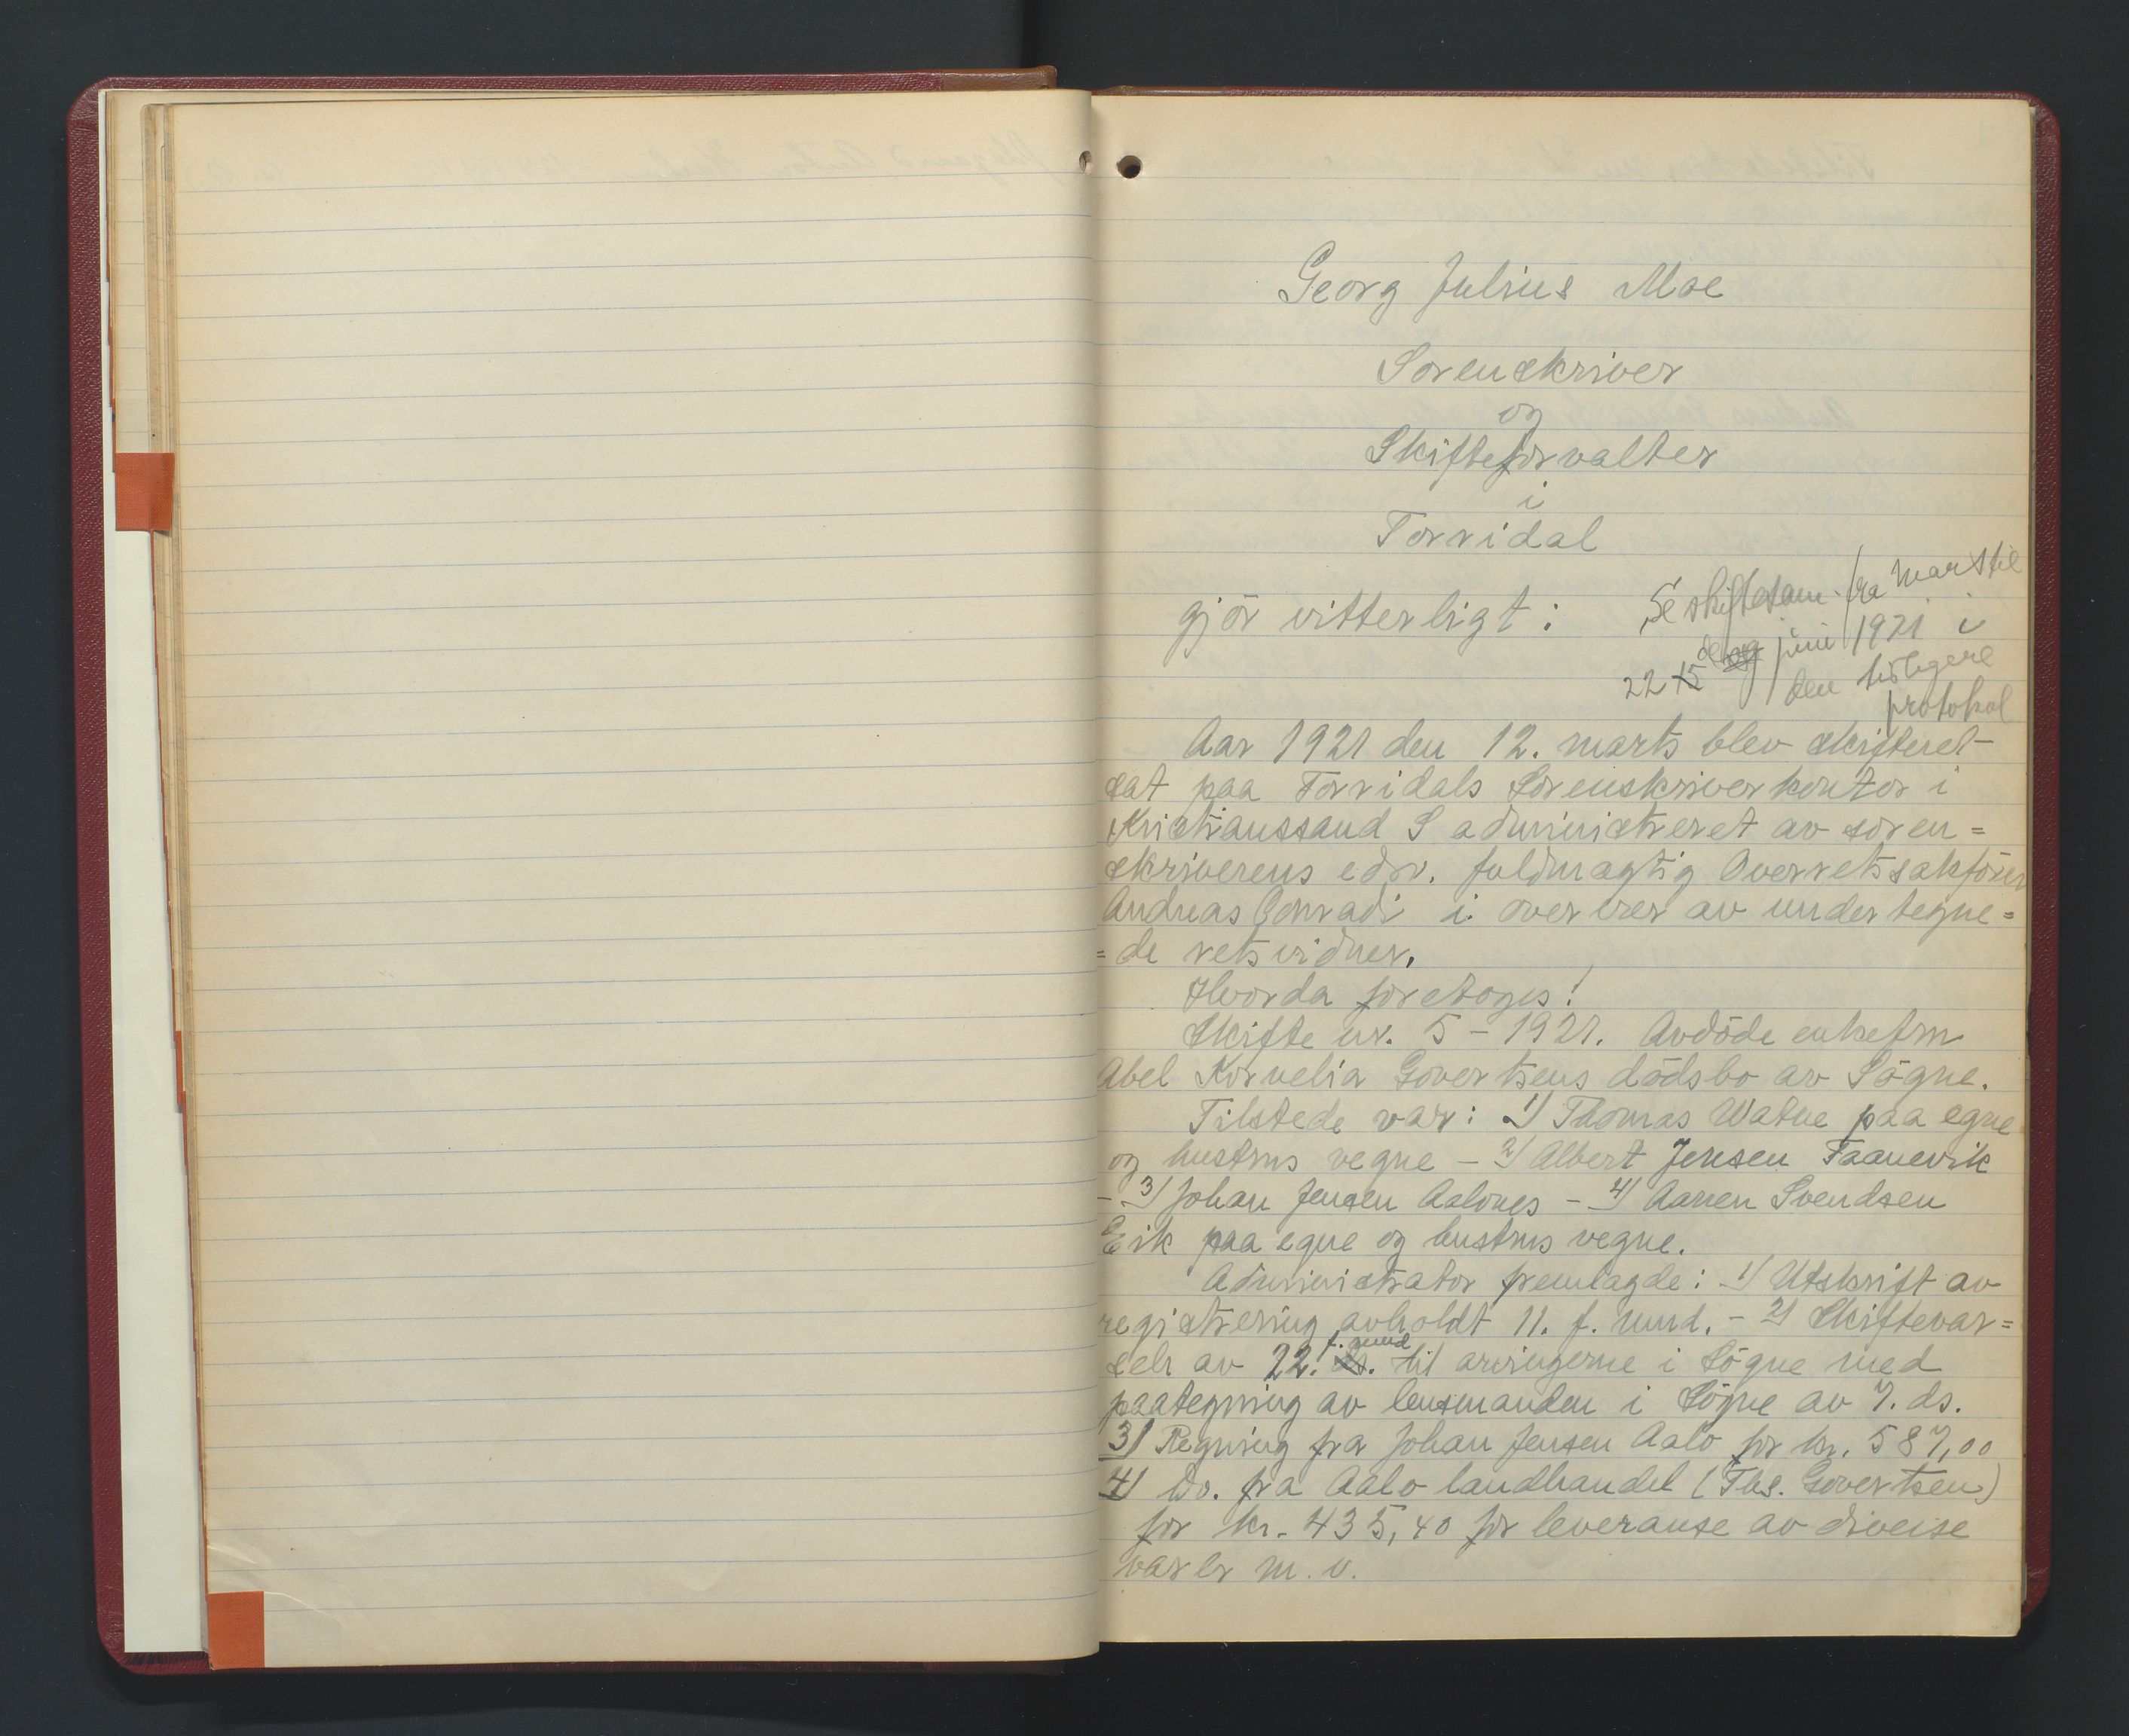 Georg Julius Moe
Sorenskriver
og
Skifteforvalter
i
Torridal
gjör vitterligt:
Se skiftesam. fra mars til
22 15 de og juni 1921 i
den tidligere
protokol
Aar 1921 den 12. marts blev skifteret
sat paa Torridals Sorenskriverkontor i
Kristianssand S administreret av soren=
skriverens edsv. fuldmægtig Overretssakförer
Andreas Conradi i overvær av undertegne=
=de retsvidner.
Hvorda foretoges!
Skifte nr. 5 - 1921. Avdöde enkefru
Abel Kornelia Govertsens dödsbo av Sögne.
Tilstede var: 1) Thomas Watne paa egne
og hustrus vegne - 2) Albert Jensen Faanevik
- 3) Johan Jensen Aalones - 4) Aanen Svendsen
Eik paa egne og hustrus vegne.
Administrator fremlagde: 1) Utskrift av
registrering avholdt 11. f. mnd. - 2) Skiftevar=
seln av 22. ds. f. mnd til arvingerne i Sögne med
paategning av lensmanden i Sögne av 7. ds.
3) Regning fra Johan Jensen Aalo for kr. 587,00
4) Do. fra Aalo landhandel (Ths. Govertsen)
for kr. 435,40 for leveranse av diverse
varer m.v.